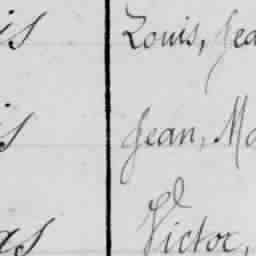 is Louis, Jea
is Jean, Ma
as Victor,